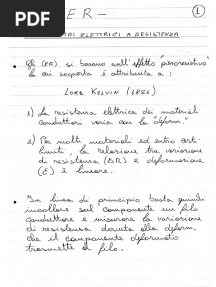 PDF
ER -
1
TRI ELETTRICI A RESISTENZA
• Gli (ER) si basano sull'effetto "piezoresistivo"
la cui scoperta è attribuita a :
LORD KELVIN (1856)
1) La resistenza elettrica dei materiali
conduttori varia con la deform.
2) Per molti materiali ed entro certi
limiti la relazione tra variazione
di resistenza (ΔR) e deformazione
(ε) è lineare.
• In linea di principio basta quindi
incollare sul componente un filo
conduttore e misurare la variazione
di resistenza dovuta alla deform.
che il componente deformato
trasmette al filo.